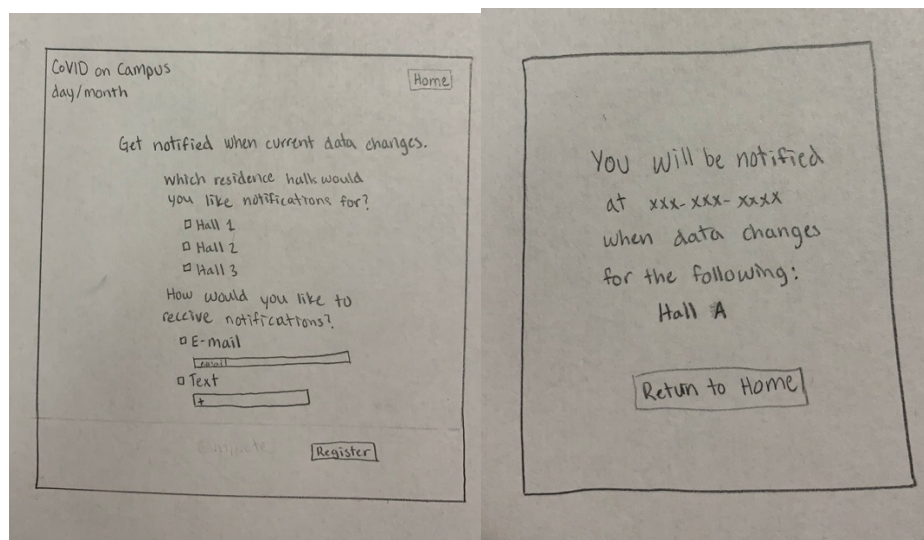 COVID on Campus
Home
day/month
Get notified when current data changes.
Which residence halls would
you like notifications for?
Hall 1
Hall 2
Hall 3
How would you like to
receive notifications?
E-mail
email
Text
+
Register
You will be notified
at xxx-xxx-xxxx
when data changes
for the following:
Hall A
Return to Home